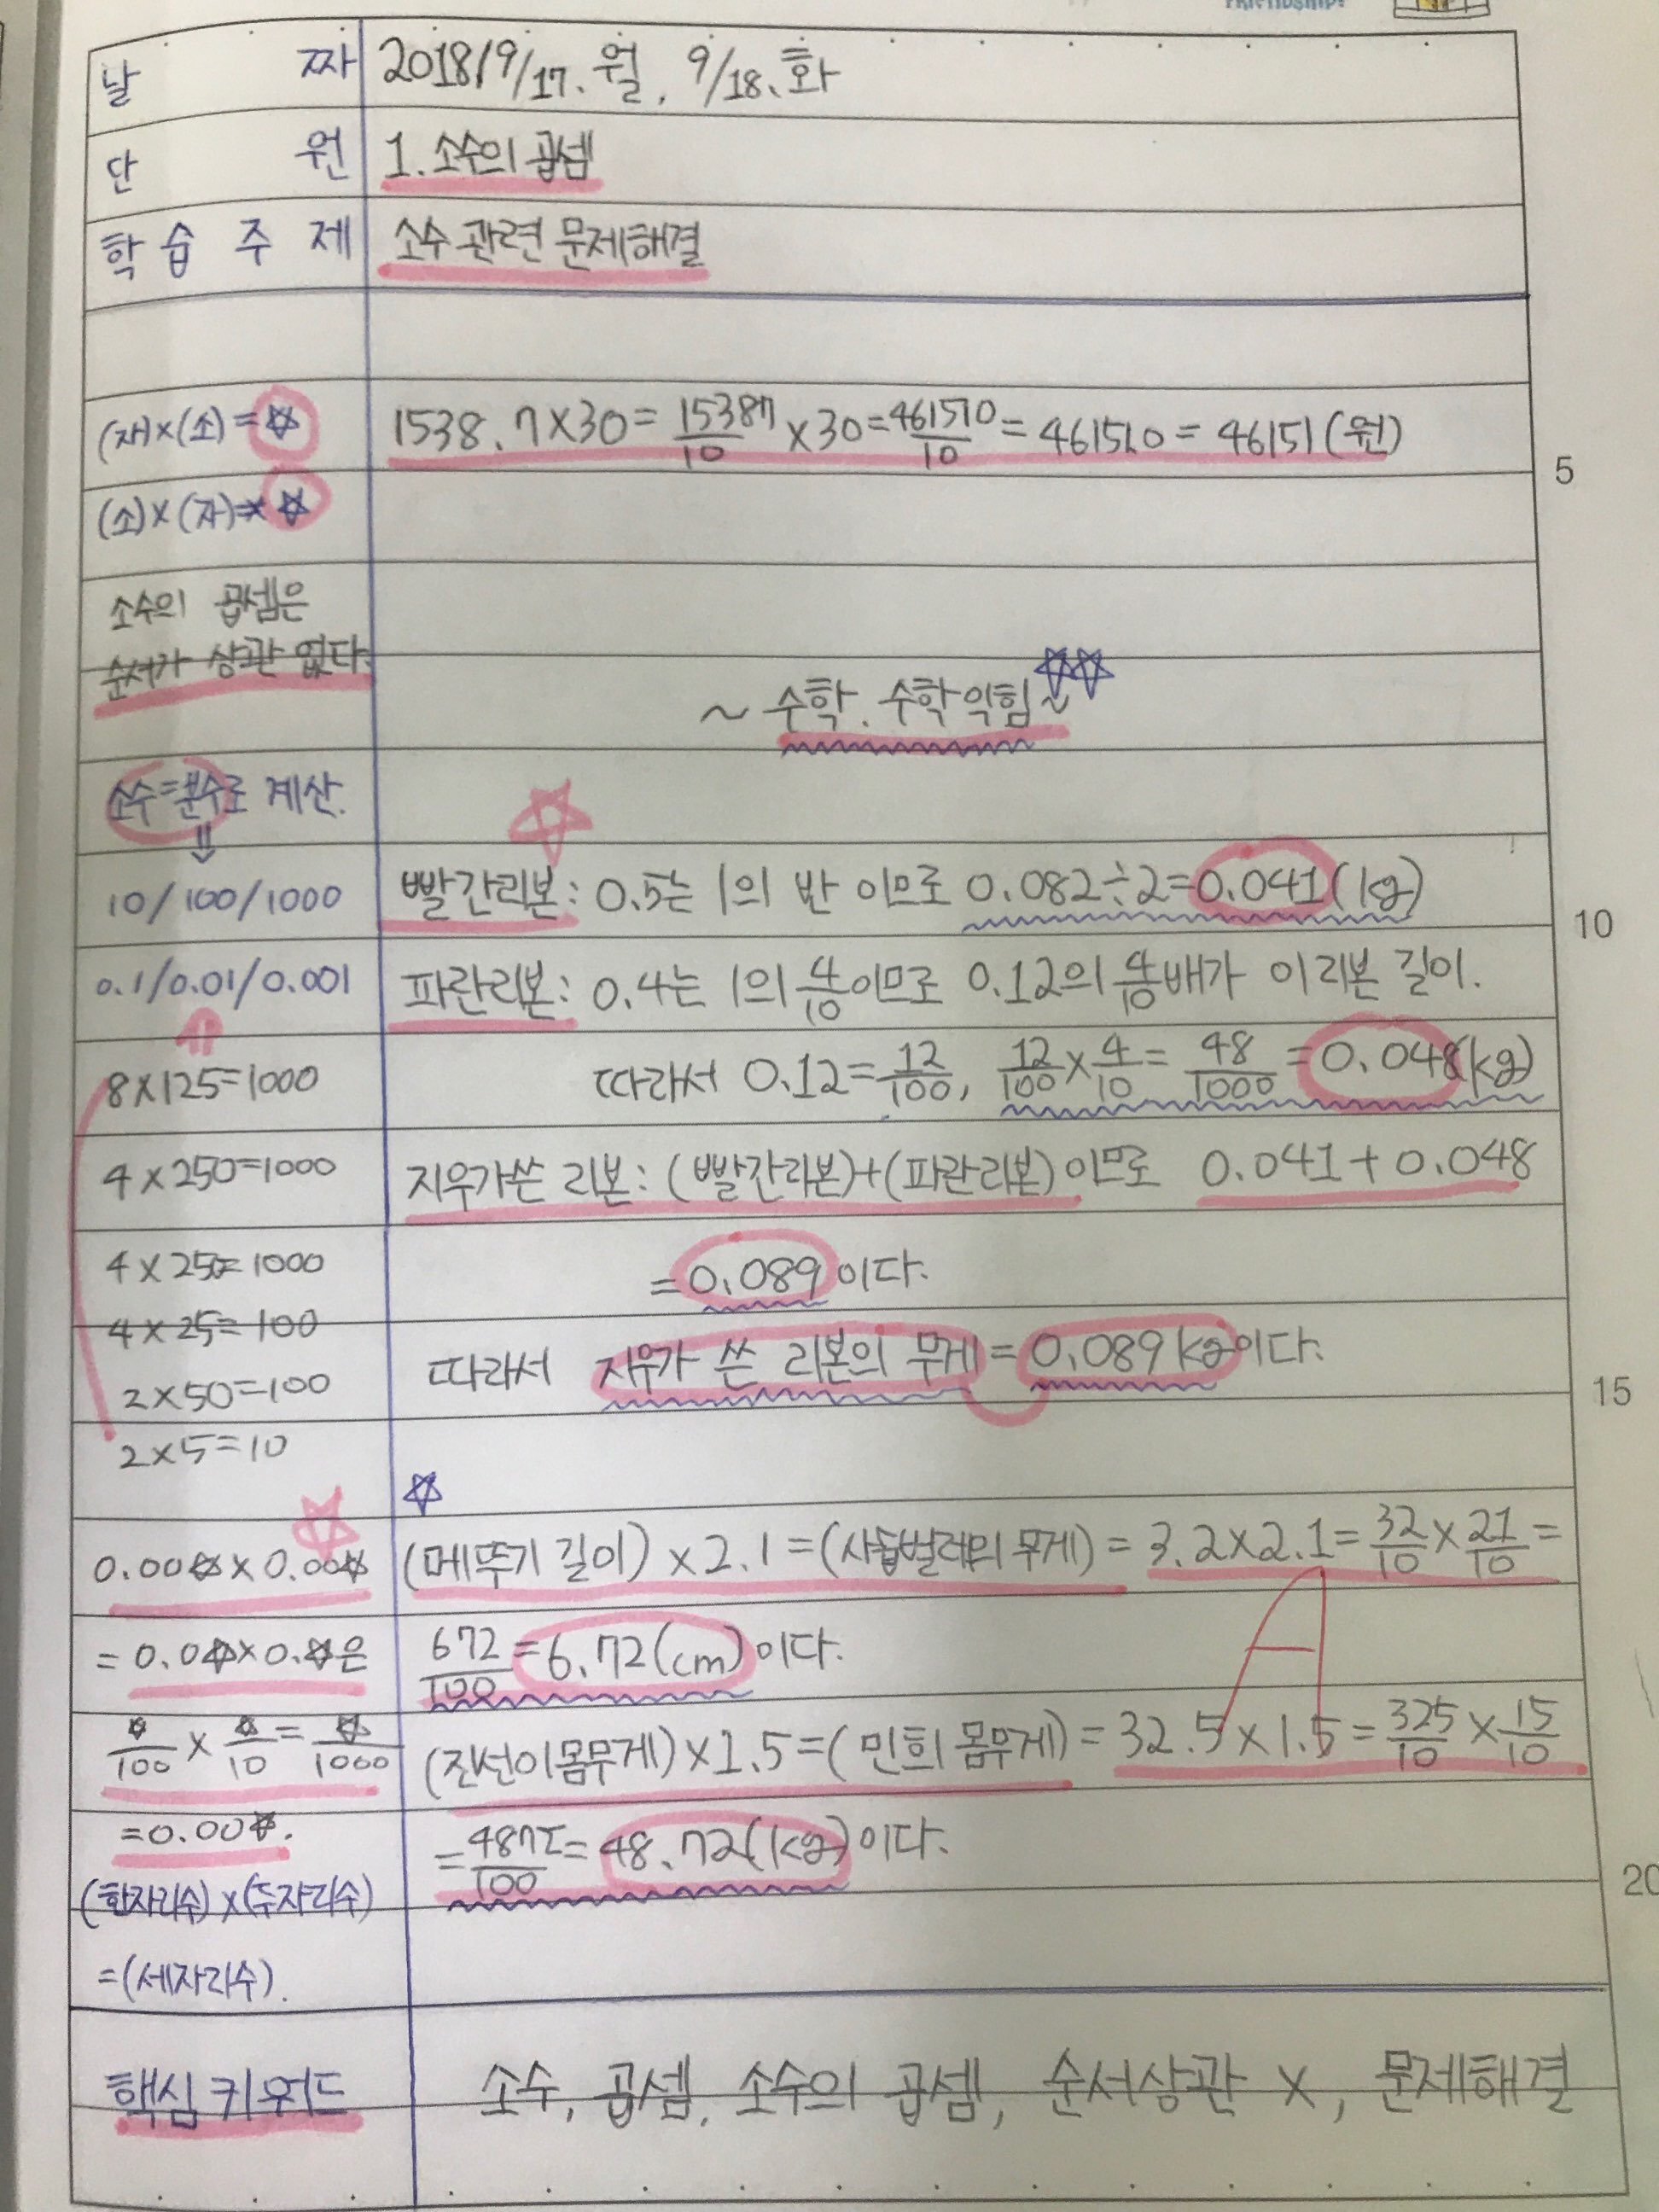 FRIENDSHIP!
날 짜 2018/9/17.월, 9/18.화
단 원 1. 소수의 곱셈
학 습 주 제 소수 관련 문제해결
(자)×(소)=☆ 1538.7×30=15387/10×30=461570/10=46151.0=46151(원)
5
(소)×(자)=☆
소수의 곱셈은
순서가 상관 없다.
~수학. 수학익힘~☆☆
소수=분수로 계산.
⇓ ☆
10/100/1000 빨간리본: 0.5는 1의 반 이므로 0.082÷2=0.041(kg)
10
0.1/0.01/0.001 파란리본: 0.4는 1의 4/10이므로 0.12의 4/10배가 이 리본 길이.
⇑
8×125=1000 따라서 0.12=12/100, 12/100×4/10=48/1000=0.048(kg)
4×250=1000 지우가쓴 리본: (빨간리본)+(파란리본)이므로 0.041+0.048
4×250=1000 =0.089이다.
4×25=100
따라서 지우가 쓴 리본의 무게=0.089kg이다.
2×50=100
15
2×5=10
☆ ☆
0.00☆×0.00☆ (메뚜기 길이)×2.1=(사슴벌레의 무게)=3.2×2.1=32/10×21/10=
=0.0☆×0.☆은 672/100=6.72(cm)이다.
A
☆/100×☆/10=☆/1000 (진선이몸무게)×1.5=(민희 몸무게)=32.5×1.5=325/10×15/10
=0.00☆. =4872/100=48.72(kg)이다.
20
(한자리수)×(두자리수)
=(세자리수).
핵심 키워드 소수, 곱셈, 소수의 곱셈, 순서상관 ×, 문제해결